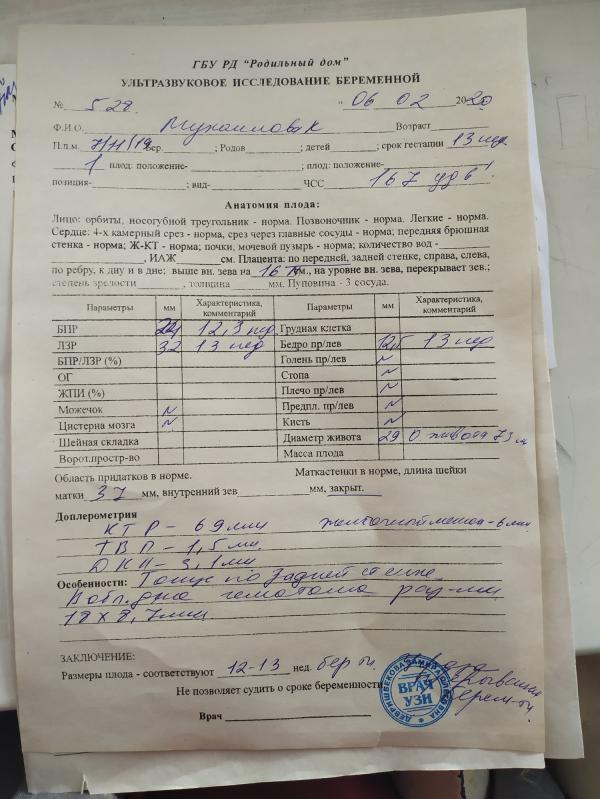 ГБУ РД "Родильный дом"
УЛЬТРАЗВУКОВОЕ ИССЛЕДОВАНИЕ БЕРЕМЕННОЙ
№ 528 "06 02 2020
Ф.И.О. Возраст
П.п.м. 7/11/19 Бер. ; Родов ; детей ; срок гестации 13 нед
1 плод: положение- ; плод: положение-
позиция- ; вид- ЧСС 167 уд в 1'
Анатомия плода:
Лицо: орбиты, носогубной треугольник - норма. Позвоночник - норма. Легкие - норма.
Сердце: 4-х камерный срез - норма, срез через главные сосуды - норма; передняя брюшная
стенка - норма; Ж-КТ - норма; почки, мочевой пузырь - норма; количество вод -
, ИАЖ см. Плацента: по передней, задней стенке, справа, слева,
по ребру, к дну и в дне: выше вн. зева на 16 мм., на уровне вн. зева, перекрывает зев.;
степень зрелости , толщина мм. Пуповина - 3 сосуда.
Параметры мм Характеристика, комментарий Параметры мм Характеристика, комментарий
БПР 12,3 нед Грудная клетка
ЛЗР 32 13 нед Бедро пр/лев 13 нед
БПР/ЛЗР (%) Голень пр/лев ~
ОГ Стопа ~
ЖПИ (%) Плечо пр/лев ~
Можечок ~ Предпл. пр/лев ~
Цистерна мозга ~ Кисть ~
Шейная складка Диаметр живота 29 О живота 73 м
Ворот.простр-во Масса плода
Область придатков в норме. Маткастенки в норме, длина шейки
матки 37 мм, внутренний зев мм, закрыт.
Доплерометрия
КТР - 69 мм желточный мешок - 6 мм.
ТВП - 1,5 мм.
ДКН - 3,1 мм
Особенности: Тонус по задней стенке
гематома раз-ми
18 х 8,7 мм.
ЗАКЛЮЧЕНИЕ:
Размеры плода - соответствуют 12-13 нед. бер-ти.
Не позволяет судить о сроке беременности
Врач
ВРАЧ УЗИ